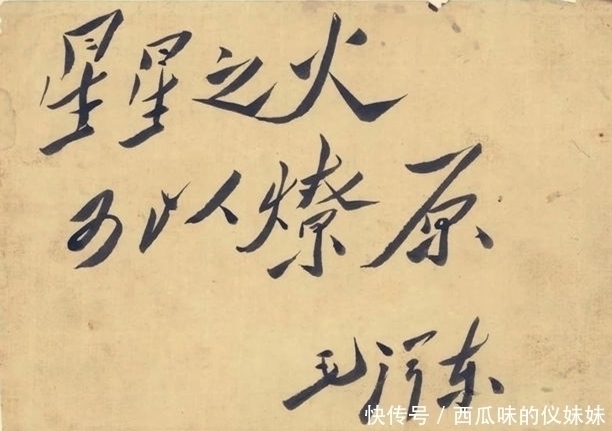 星星之火
可以燎原
毛泽东
快传号／西瓜味的仪妹妹